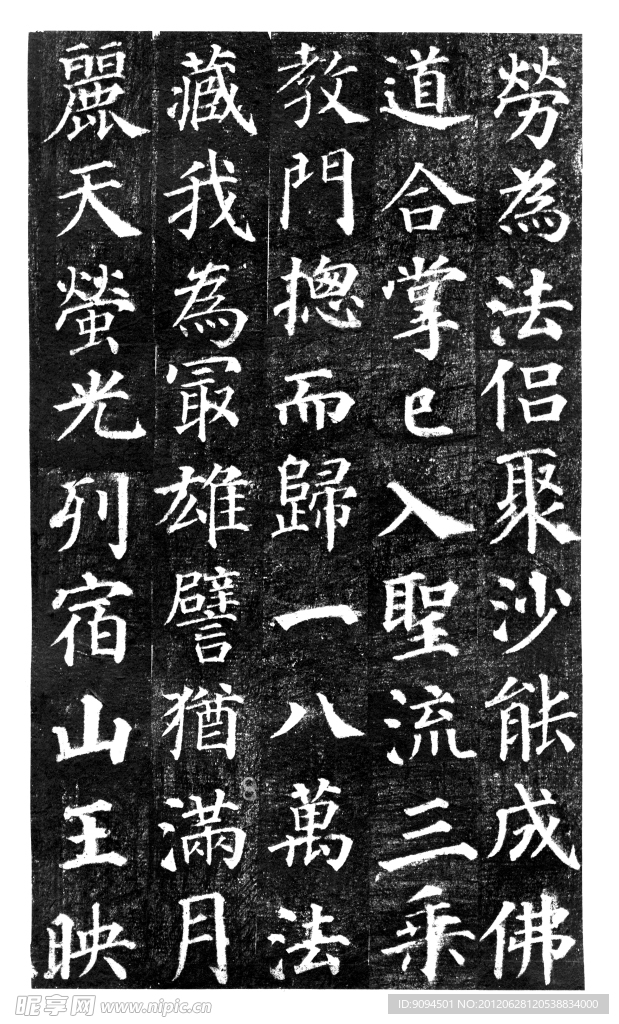 勞為法侶聚沙能成佛
道合掌已入聖流三乘
教門摠而歸一八萬法
藏我為冣雄譬猶滿月
麗天螢光列宿山王映
昵享网 www.nipic.cn
ID:9094501 NO:20120628120538834000